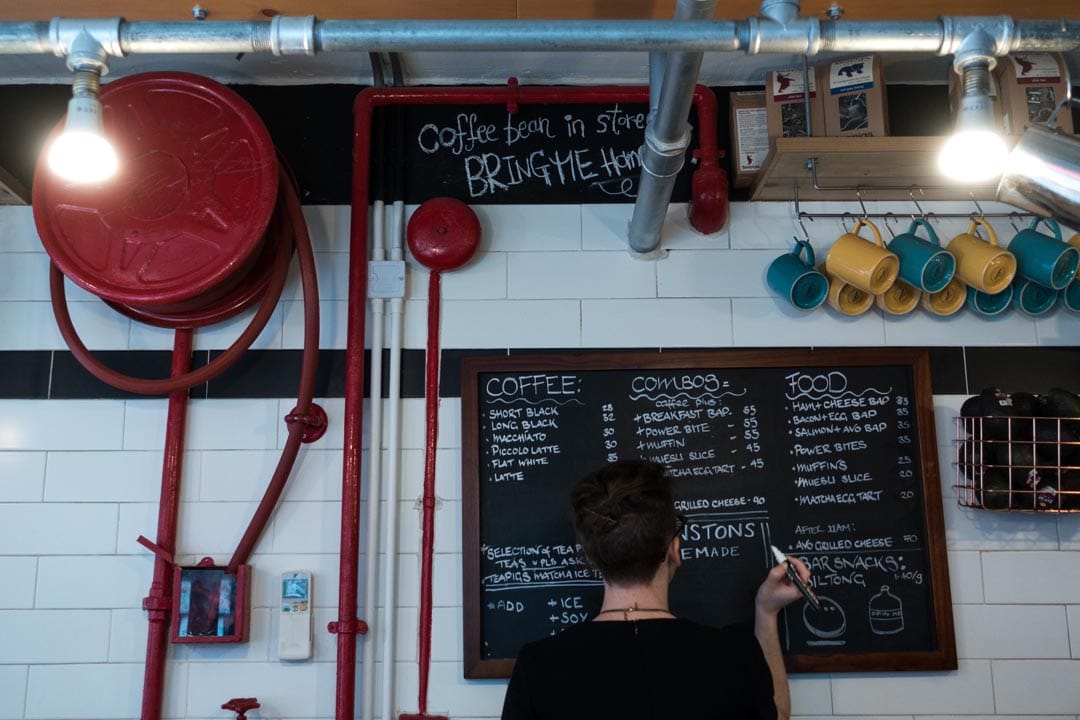 Coffee bean in store
BRING ME Home
COFFEE:
• SHORT BLACK 28
• LONG BLACK 32
• MACCHIATO 30
• PICCOLO LATTE 30
• FLAT WHITE 35
• LATTE
SELECTION OF TEA P
TEAS + PLS ASK
TEAPIGS MATCHA ICE TE
*ADD + ICE
+ SOY
COMBOS =
coffee plus:
+ BREAKFAST BAP - 65
+ POWER BITE - 55
+ MUFFIN - 55
+ MUESLI SLICE - 45
MATCHA EGG TART - 45
GRILLED CHEESE - 90
NSTONS
EMADE
FOOD
• HAM + CHEESE BAP 35
• BACON + EGG BAP 35
• SALMON + AVO BAP 35
• POWER BITES 35
• MUFFINS 25
• MUESLI SLICE 20
• MATCHA EGG TART 20
AFTER 11AM:
AVO GRILLED CHEESE 70
BAR SNACKS:
BILTONG